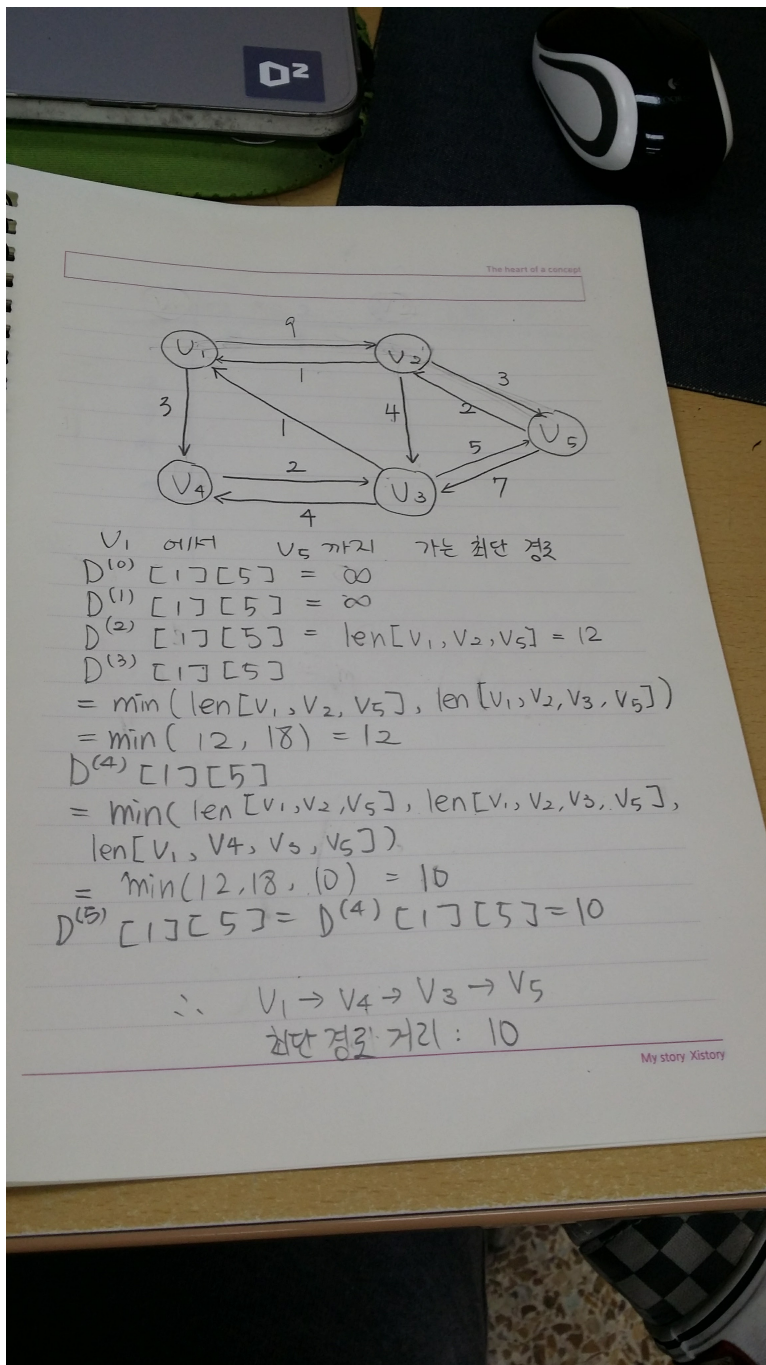 D²
The heart of a concept
9
V₁ V₂
1
3
3 4 2
1 5 V₅
2
V₄ V₃ 7
4
V₁ 에서 V₅ 까지 가는 최단 경로
D⁽⁰⁾ [1][5] = ∞
D⁽¹⁾ [1][5] = ∞
D⁽²⁾ [1][5] = len[V₁, V₂, V₅] = 12
D⁽³⁾ [1][5]
= min(len[V₁, V₂, V₅], len[V₁, V₂, V₃, V₅])
= min( 12, 18) = 12
D⁽⁴⁾ [1][5]
= min( len [V₁, V₂, V₅], len[V₁, V₂, V₃, V₅],
len[V₁, V₄, V₃, V₅])
= min(12, 18, 10) = 10
D⁽⁵⁾ [1][5] = D⁽⁴⁾ [1][5] = 10
∴ V₁ → V₄ → V₃ → V₅
최단 경로 거리 : 10
My story Xistory